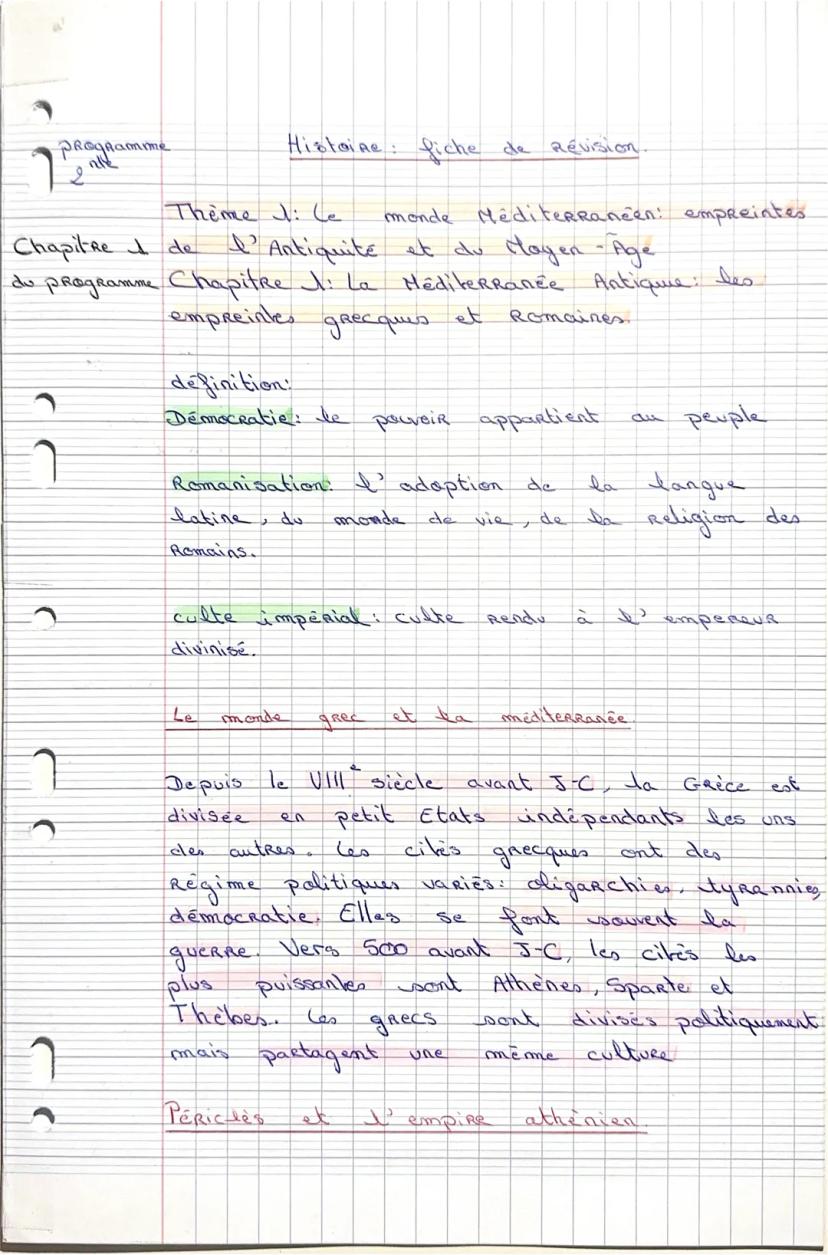 Histoire : fiche de révision.
programme
2nde
Thème 1: Le monde Méditerranéen: empreintes
de l'Antiquité et du Moyen-Âge
Chapitre 1
du programme
Chapitre 1: La Méditerranée Antique: les
empreintes grecques et Romaines.
définition:
Démocratie: le pouvoir appartient au peuple
Romanisation: l'adoption de la langue
latine, du monde de vie, de la religion des
Romains.
culte impérial: culte rendu à l'empereur
divinisé.
Le monde grec et la méditerranée
Depuis le VIIIe siècle avant J-C, la Grèce est
divisée en petit Etats indépendants les uns
des autres. Les cités grecques ont des
Régime politiques variés: oligarchies, tyrannies,
démocratie. Elles se font souvent la
guerre. Vers 500 avant J-C, les cités les
plus puissantes sont Athènes, Sparte et
Thèbes. Les grecs sont divisés politiquement
mais partagent une même culture
Périclès et l'empire athénien.